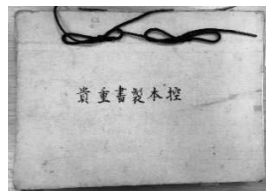 貴重書製本控